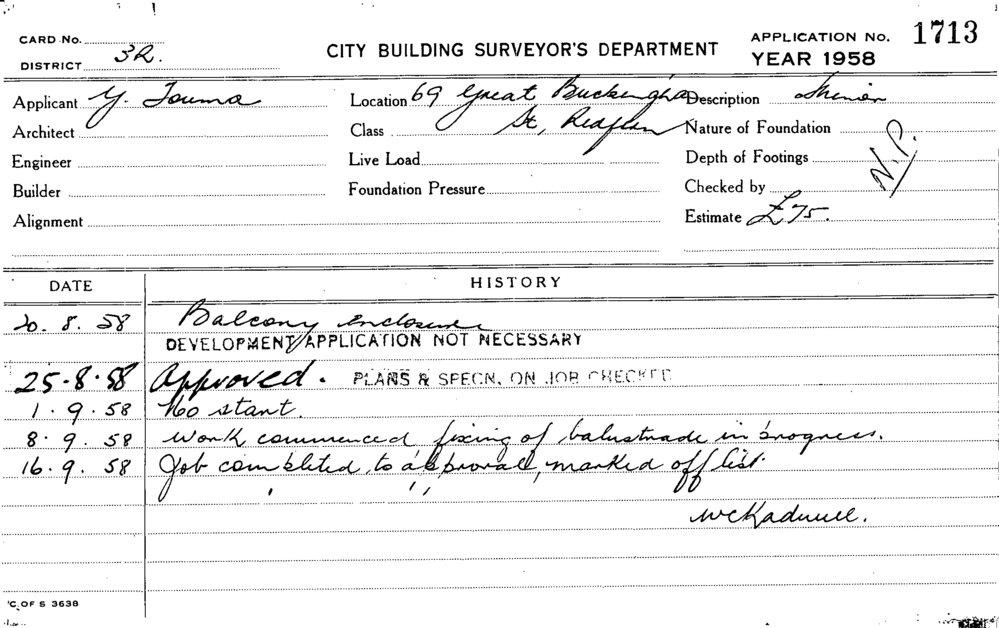 CARD No.
DISTRICT 3R.
CITY BUILDING SURVEYOR'S DEPARTMENT
APPLICATION No. 1713
YEAR 1958
Applicant Y. Touma
Location 69 Great Buckingha
St, Redfern
Description
Architect
Class
Nature of Foundation
Engineer
Live Load
Depth of Footings
N.P.
Builder
Foundation Pressure
Checked by
Alignment
Estimate £75.
DATE
HISTORY
20. 8. 58 Balcony enclosure
DEVELOPMENT APPLICATION NOT NECESSARY
25-8-58 Approved. PLANS & SPECN. ON JOB CHECKED
1. 9. 58 No start.
8. 9. 58 Work commenced fixing of balustrade in progress.
16. 9. 58 Job completed to approval, marked off list.
C. OF S 3638